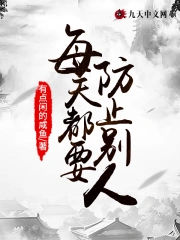 九天中文网
每天都要
防止别人
有点闲的咸鱼 著